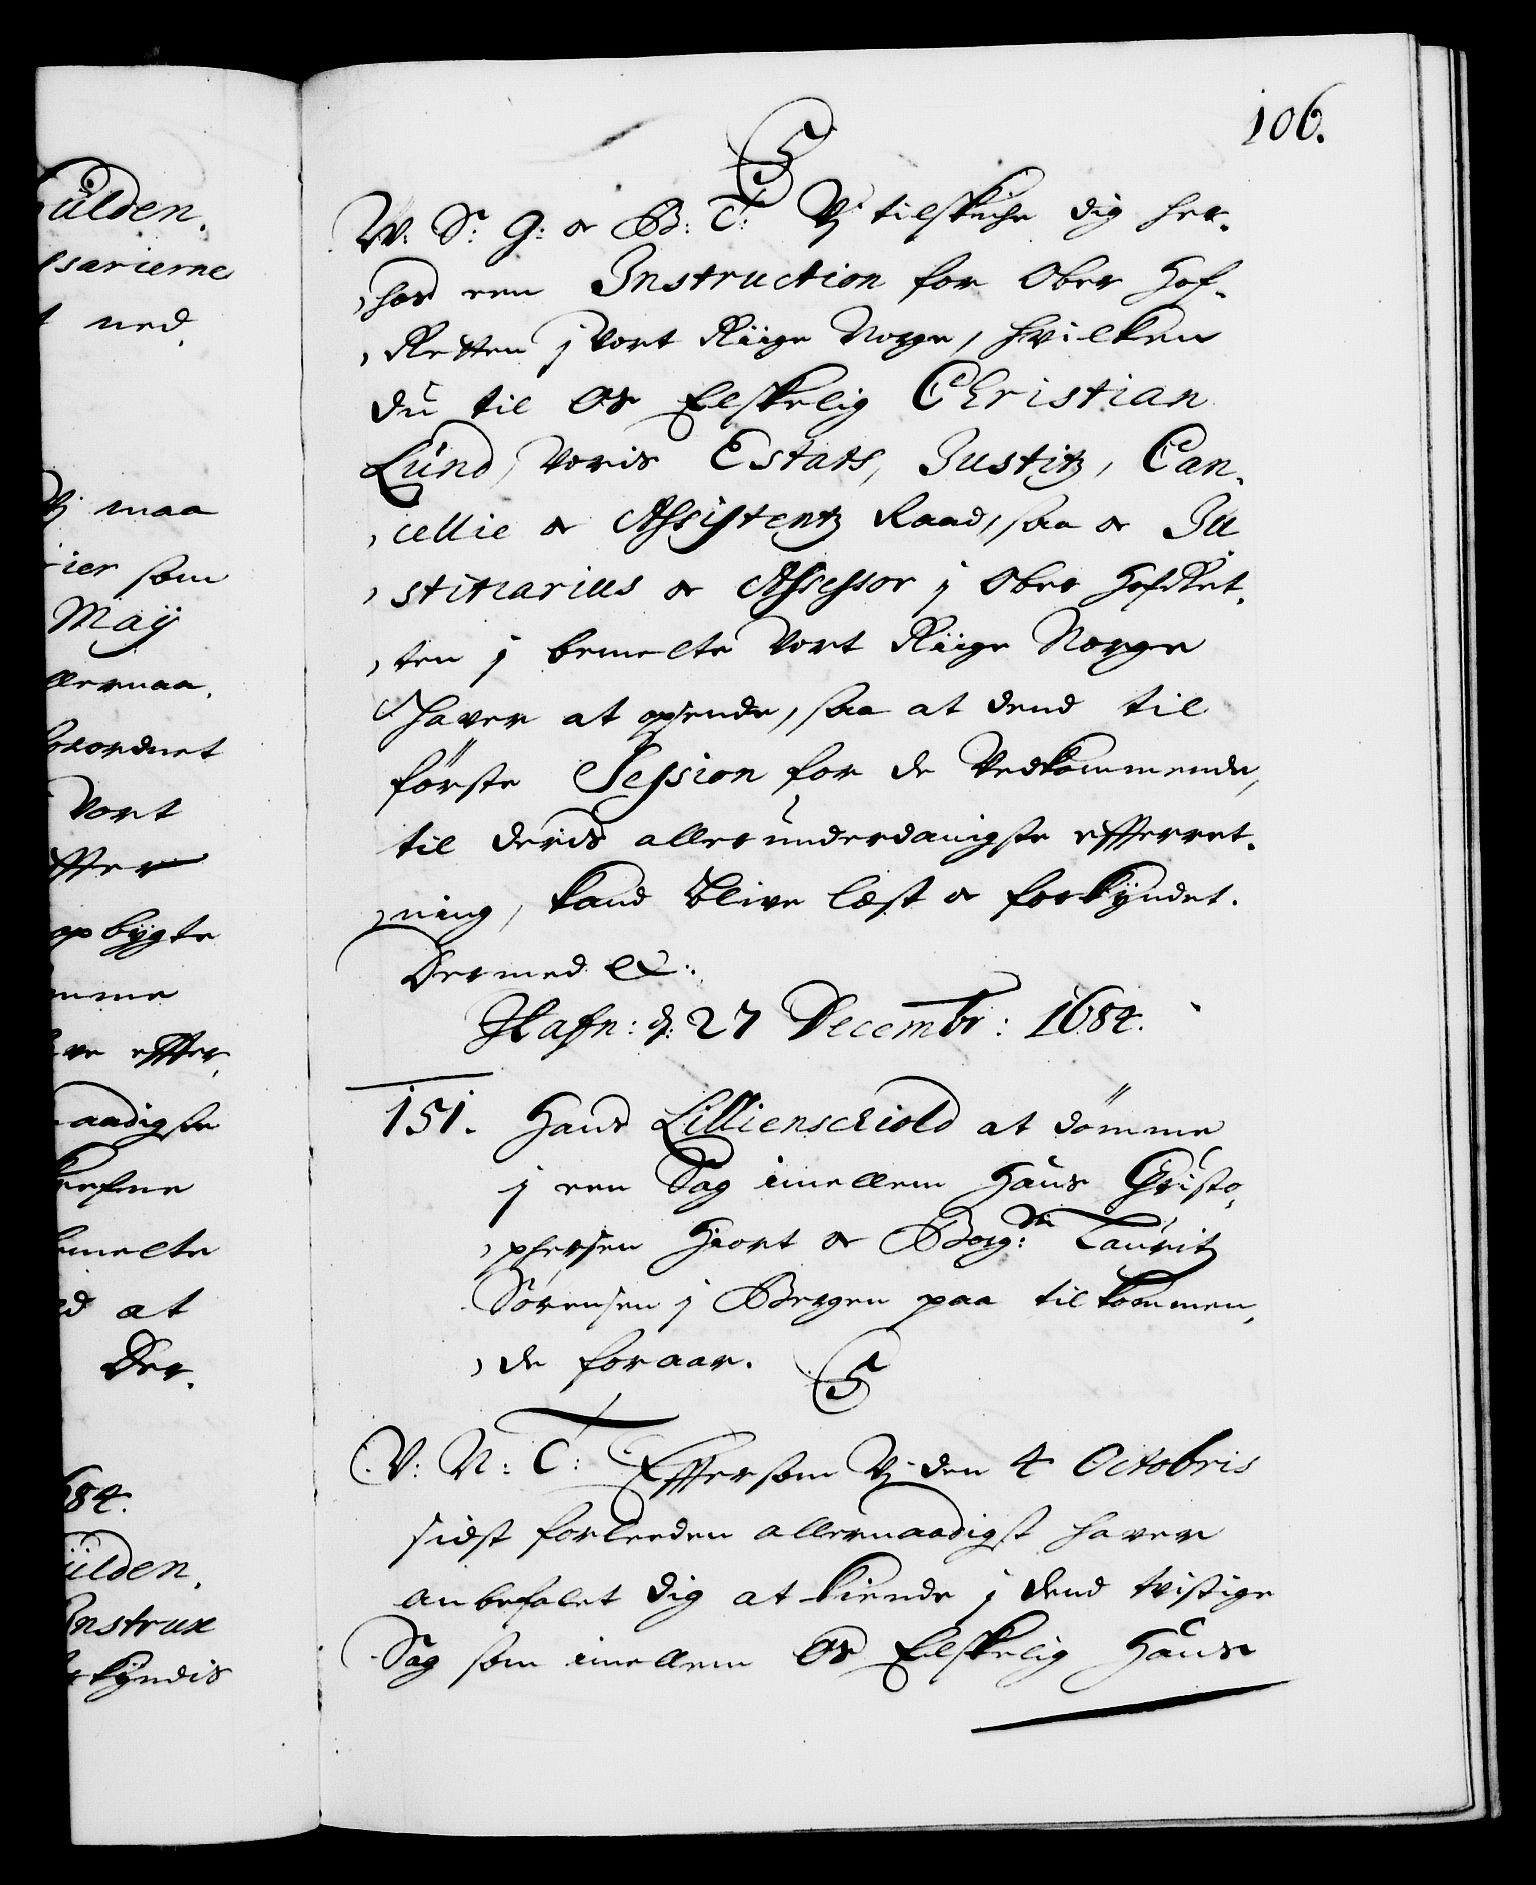 106.
C5
W: S: G: oc B: T: Vj tilskiche dig her-
hos een Instruction for Ober Hof-
Retten j Vort Riige Norge, hvilken
du til Os Elskelig Christian
Lund, Voris Estats, Justitz, Can-
cellie oc Assistentz Raad, saa oc Ju
stitiarius oc Assessor j Ober HofRet-
ten j bemelte Vort Riige Norge
hafver at opsende, saa at dend til
förste Session for de Vedkommende,
til deris allerunderdanigste efterret-
ning, kand blive læst oc forkÿndet.
Dermed &:
Hafn: d: 27 Decembr: 1684.
151. Hans Lillienschiold at dömme
j een Sag imellem Hans Christo-
phersen Hiort oc Borg: Lauritz
Sörensen j Bergen paa tilkommen-
de foraar.
V: N: T: Eftersom Vj den 4 Octobris
sidst forleeden allernaadigst hafver
anbefalet dig at kiende j dend tvistige
Sag som imellem Os Elskelig Hans
ülden.
sarierne
ned.
Vj maa
ier som
Maÿ
llernaa.
forordnet
Vort
opbÿgte
aadigste
bemelte
at
Der.
684.
ülden.
Instrux
kÿndis